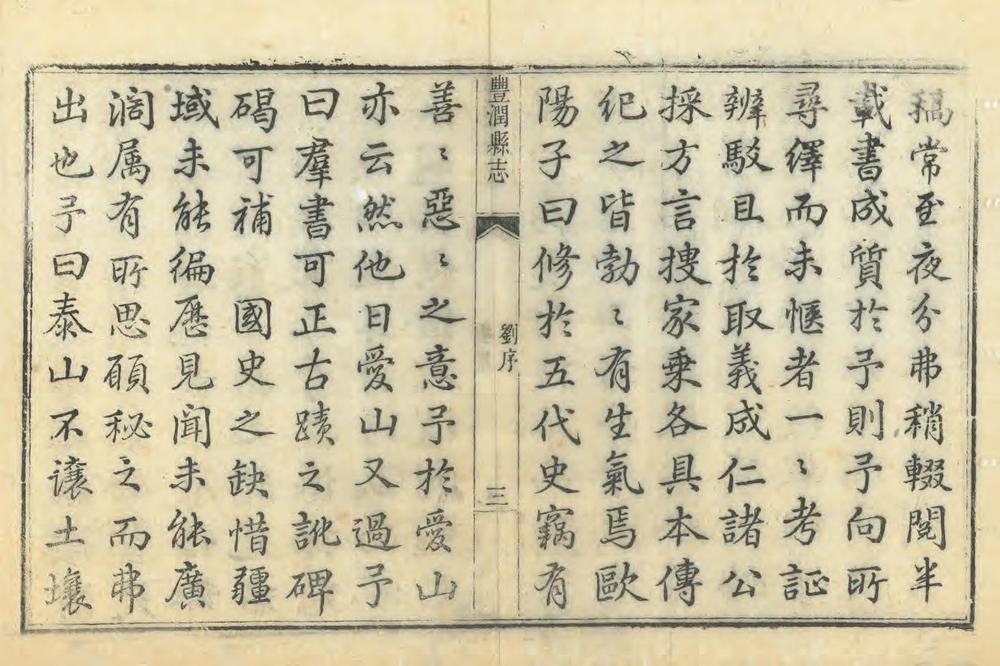 稿常至夜分弗稍輟閱半
載書成質於予則予向所
尋繹而未愜者一〻考証
辨駁且於取義成仁諸公
採方言搜家乗各具本傳
紀之皆勃〻有生氣焉歐
陽子曰修於五代史竊有
豐潤縣志
劉序
三
善〻惡〻之意予於愛山
亦云然他日愛山又過予
曰羣書可正古蹟之訛碑
碣可補 國史之缺惜疆
域未能徧歷見聞未能廣
濶属有所思願秘之而弗
出也予曰泰山不讓土壤